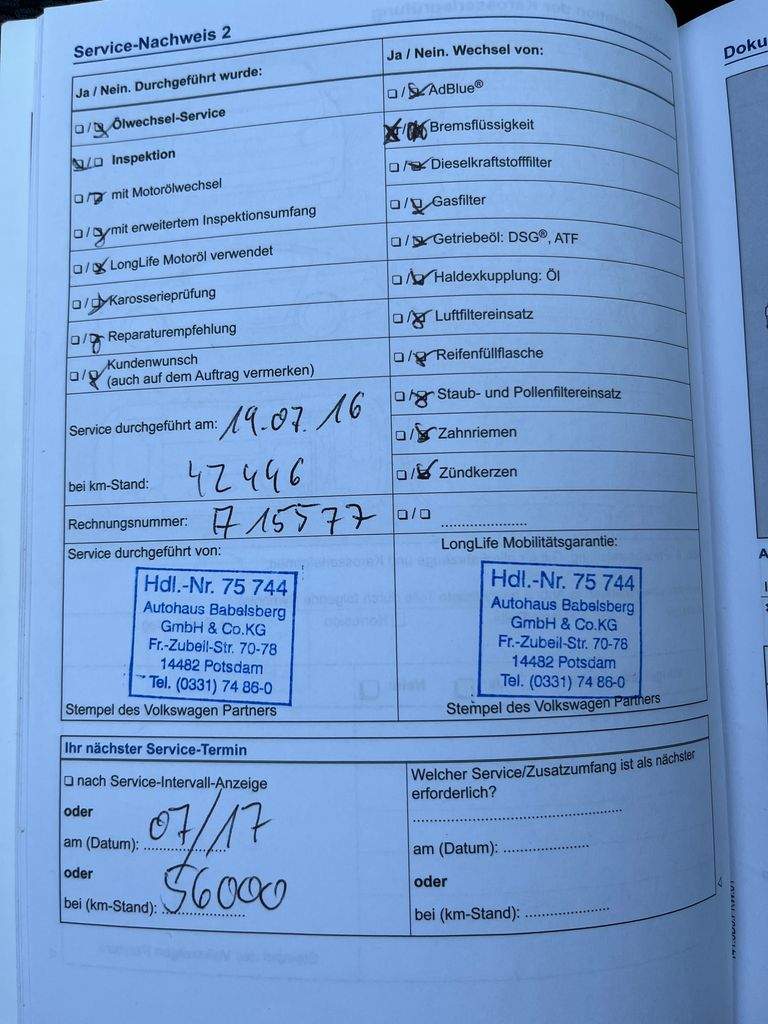 Service-Nachweis 2
Ja / Nein. Durchgeführt wurde:
Ölwechsel-Service
Inspektion
mit Motorölwechsel
mit erweitertem Inspektionsumfang
LongLife Motoröl verwendet
Karosserieprüfung
Reparaturempfehlung
Kundenwunsch
(auch auf dem Auftrag vermerken)
Service durchgeführt am: 19.07.16
bei km-Stand: 42446
Rechnungsnummer: A 715577
Service durchgeführt von:
Hdl.-Nr. 75 744
Autohaus Babelsberg
GmbH & Co.KG
Fr.-Zubeil-Str. 70-78
14482 Potsdam
Tel. (0331) 74 86-0
Stempel des Volkswagen Partners
Ja / Nein. Wechsel von:
AdBlue®
Bremsflüssigkeit
Dieselkraftstofffilter
Gasfilter
Getriebeöl: DSG®, ATF
Haldexkupplung: Öl
Luftfiltereinsatz
Reifenfüllflasche
Staub- und Pollenfiltereinsatz
Zahnriemen
Zündkerzen
LongLife Mobilitätsgarantie:
Hdl.-Nr. 75 744
Autohaus Babelsberg
GmbH & Co.KG
Fr.-Zubeil-Str. 70-78
14482 Potsdam
Tel. (0331) 74 86-0
Stempel des Volkswagen Partners
Ihr nächster Service-Termin
nach Service-Intervall-Anzeige
oder
am (Datum): 07/17
oder
bei (km-Stand): 56000
Welcher Service/Zusatzumfang ist als nächster
erforderlich?
am (Datum):
oder
bei (km-Stand):
Doku